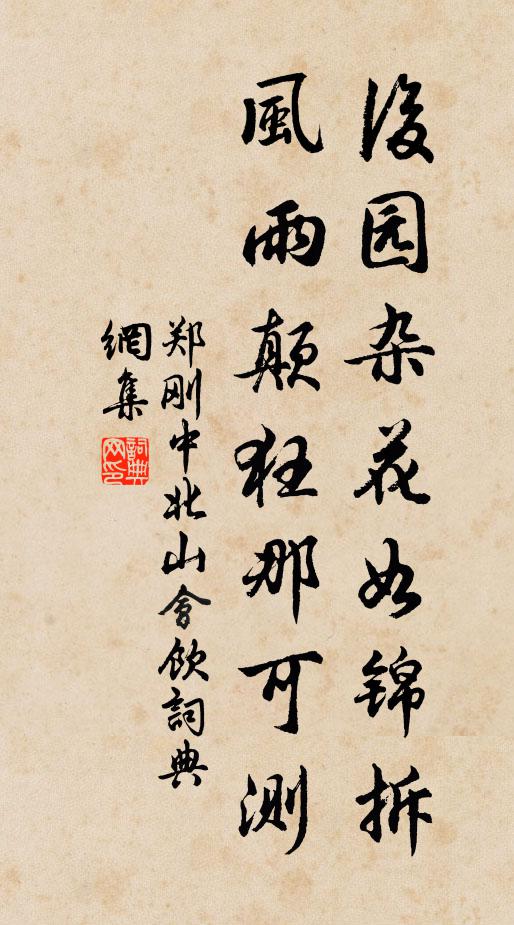 後园杂花如锦拆
風雨颠狂那可测
郑刚中北山會飲詞典
網集
詞典网印